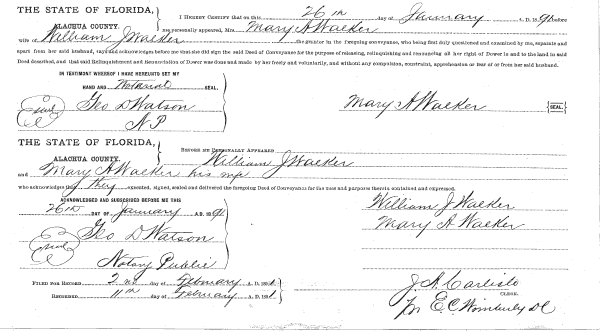 THE STATE OF FLORIDA,
ALACHUA COUNTY.
I HEREBY CERTIFY that on this 26th day of January A. D. 1891 before
me personally appeared, Mrs. Mary A Walker
wife of William J Walker the grantor in the foregoing conveyance, who being first duly questioned and examined by me, separate and
apart from her said husband, says and acknowledges before me that she did sign the said Deed of Conveyance for the purpose of releasing, relinquishing and renouncing all her right of Dower in and to the land in said
Deed described, and that said Relinquishment and Renunciation of Dower was done and made by her freely and voluntarily, and without any compulsion, constraint, apprehension or fear of or from her said husband.
IN TESTIMONY WHEREOF I HAVE HEREUNTO SET MY
HAND AND Notarial SEAL,
Seal Geo D Watson
N P
Mary A Walker {SEAL}
THE STATE OF FLORIDA,
ALACHUA COUNTY.
BEFORE ME PERSONALLY APPEARED William J Walker
and Mary A Walker his wife
who acknowledges that they executed, signed, sealed and delivered the foregoing Deed of Conveyance for the uses and purposes therein contained and expressed.
ACKNOWLEDGED AND SUBSCRIBED BEFORE ME THIS
26th DAY OF January A. D. 1891
Seal Geo D Watson
Notary Public
William J Walker
Mary A Walker
FILED FOR RECORD 2nd day of February A. D. 1891
RECORDED 11th day of February A. D. 1891
J. A. Carlisle
CLERK.
Per E. C. Wimberly DC